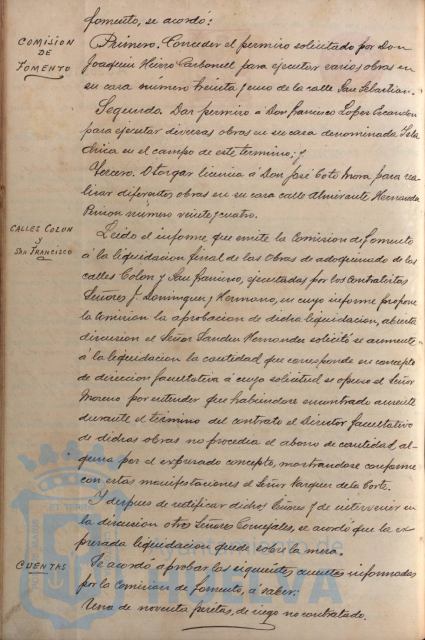 fomento, se acordó:
COMISION
DE
FOMENTO
Primero. Conceder el permiso solicitado por Don
Joaquin Hierro Carbonell para ejecutar varias obras en
su casa número treinta y uno de la calle San Sebastian.
Segundo. Dar permiso á Don Francisco López Escandon
para ejecutar diversas obras en su casa denominada Isla
Chica en el campo de este término; y
Tercero. Otorgar licencia á Don José Coto Mora para rea-
lizar diferentes obras en su casa calle Almirante Hernandez
Pinzon número veinte y cuatro.
CALLES COLON
y
SAN FRANCISCO
Leido el informe que emite la Comision de fomento
á la liquidacion final de las obras de adoquinado de las
calles Colon y San Francisco, ejecutadas por los contratistas
Señores Dominguez y Hermano, en cuyo informe propone
la Comision la aprobacion de dicha liquidacion, abierta
discusion el Señor Sanchez Hernandez solicitó se aumente
á la liquidacion la cantidad que corresponde en concepto
de direccion facultativa á cuya solicitud se opuso el Señor
Moreno por entender que habiendose encontrado ausente
durante el término del contrato el Director facultativo
de dichas obras no procedia el abono de cantidad al-
guna por el expresado concepto, mostrandose conforme
con estas manifestaciones el Señor Vazquez de la Corte.
Y despues de rectificar dichos Señores y de intervenir en
la discusion otros Señores Concejales, se acordó que la ex-
presada liquidacion quede sobre la mesa.
CUENTAS
Se acordó aprobar las siguientes cuentas informadas
por la Comision de fomento, á saber:
Una de noventa pesetas, de riego no contratado.